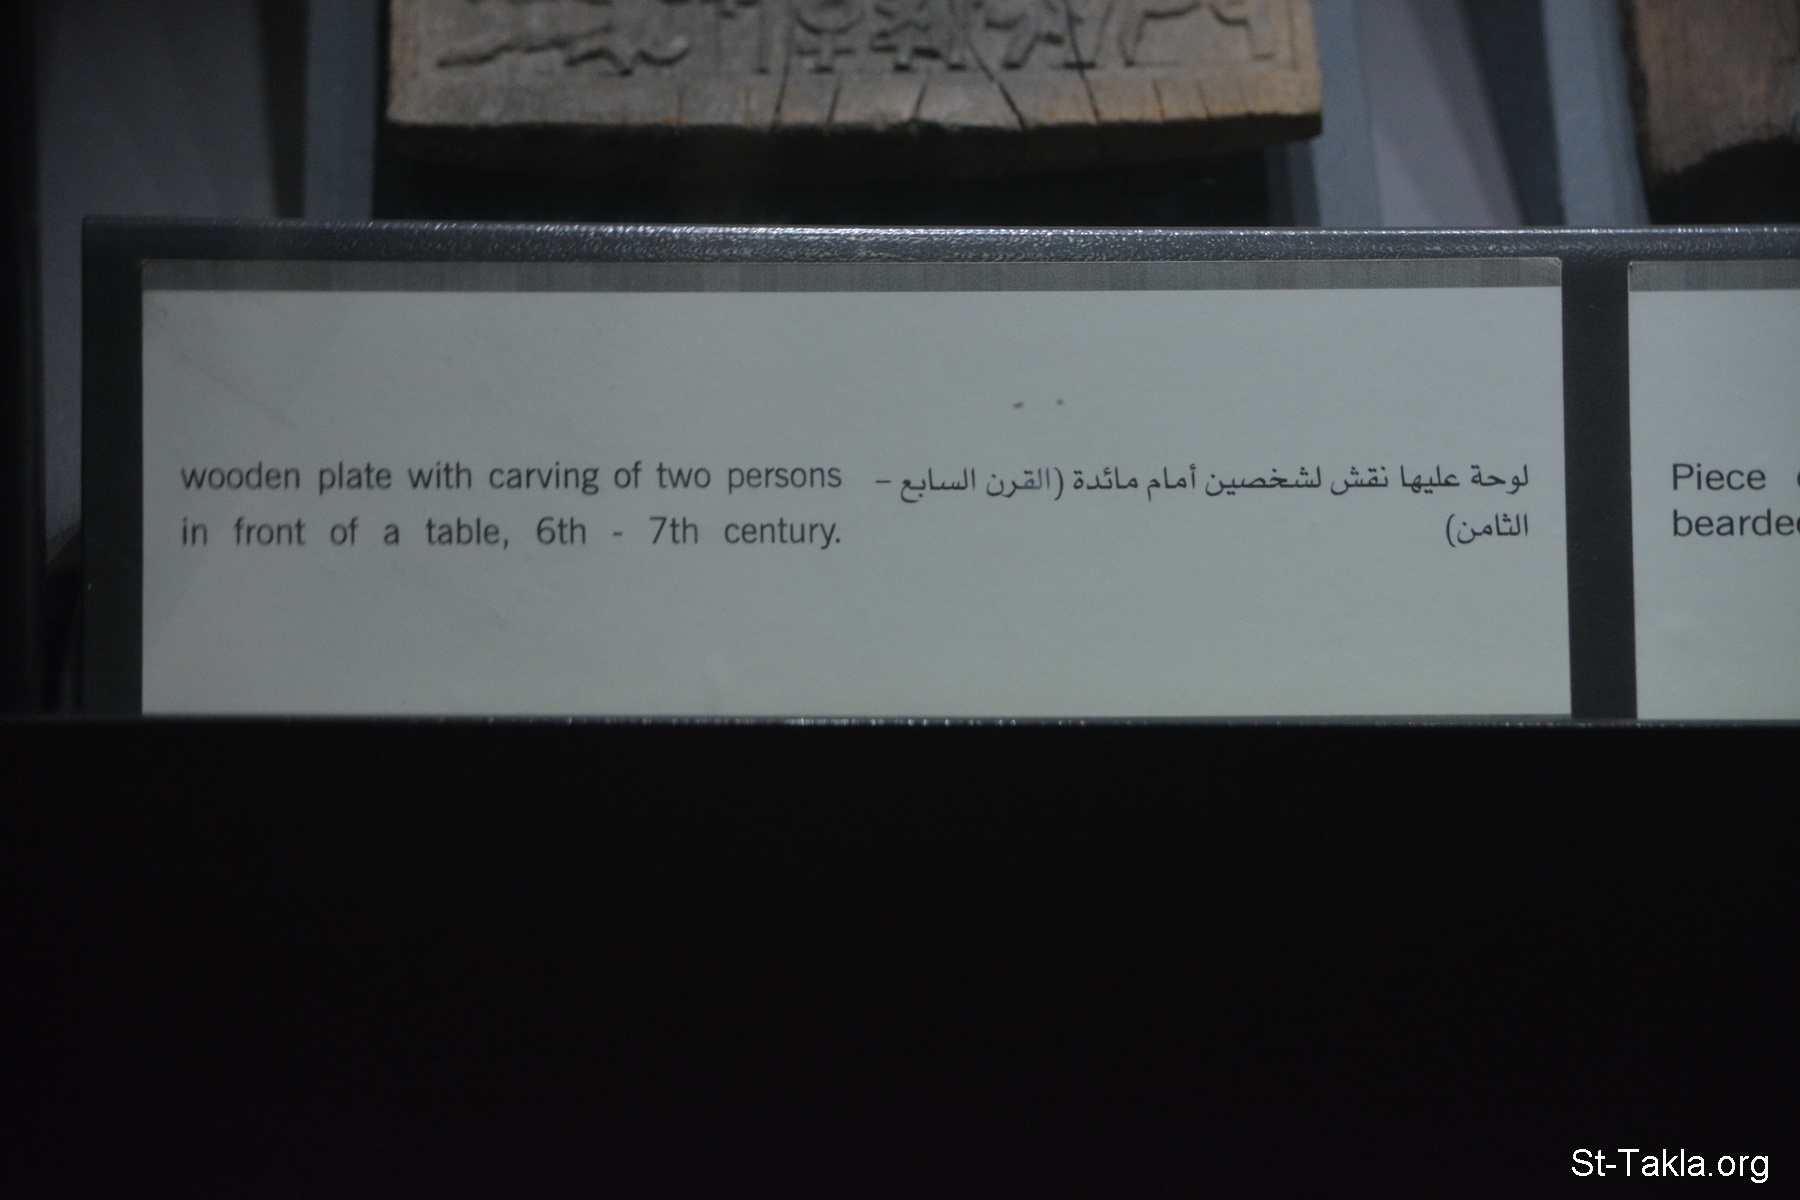 wooden plate with carving of two persons
in front of a table, 6th - 7th century.
لوحة عليها نقش لشخصين أمام مائدة (القرن السابع –
الثامن)
Piece
bearded
St-Takla.org